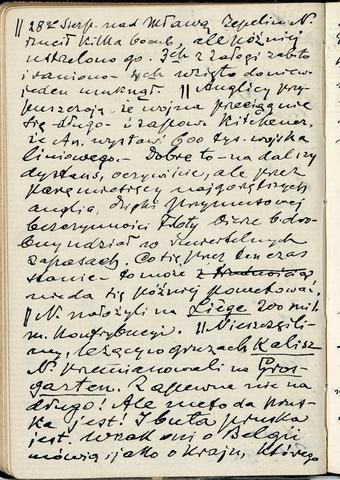 || 28go Sierp. nad Mławą Zepelin N.
rzucił kilka bomb, ale później
ustrzelono go. Ich z załogi zabito
i raniono - tych wzięto do niewo-
jeden umknął. || Anglicy przy-
puszczają że wojna przeciągnie
się długo - i zapow. Kitchener,
że An. wystawi 600 tys. wojska
liniowego. - Dobre to - na dalszy
dystans, oczywiście, ale przez
parę miesięcy najgorętszych
anglia, dzięki przymusowej
bezczynności floty bierze b. dro-
bny udział w śmiertelnych
zapasach. Co się przez ten czas
stanie - to może z trudnością
nie da się później powetować.
|| N. nałożyli na Liège 200 mil.
m. kontrybucyi. || Nieszczęśli-
wy, leżący w gruzach Kalisz
N. przemianowali na Gros-
garten. Zapewne nie na
długo! Ale metoda prus-
ka jest! I buta pruska
jest. Wszak oni o Belgii
mówią, jako o kraju, którego